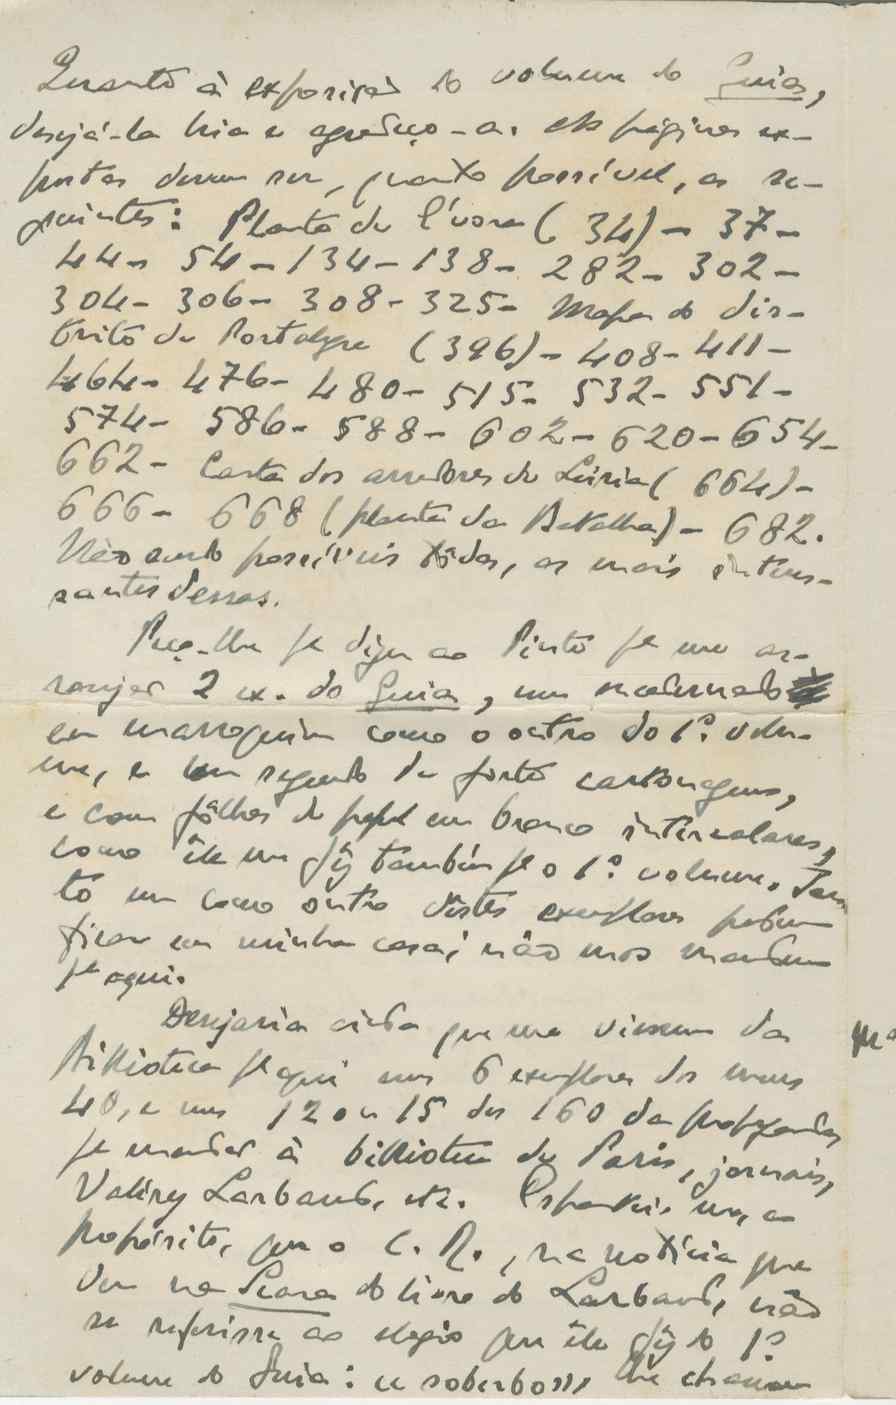 Quanto à exposição do volume do Guia,
desejá-la-hia e agradeço-a. As páginas ex-
postas devem ser, quanto possível, as se-
guintes: Planta de Évora (34) - 37 -
44 - 54 - 134 - 138 - 282 - 302 -
304 - 306 - 308 - 325 - Mapa do dis-
trito de Portalegre (396) - 408 - 411 -
464 - 476 - 480 - 515 - 532 - 551 -
574 - 586 - 588 - 602 - 620 - 654 -
662 - Carta dos arredores de Leiria (664) -
666 - 668 (planta da Batalha) - 682.
Não sendo possíveis tôdas, as mais interes-
santes dessas.
Peço-lhe q diga ao Pinto q me ar-
ranjar 2 ex. do Guia, um encadernado
em marroquim como o outro do 1º. volu-
me, e um segundo de forte cartonagem,
e com fôlhas de papel em branco intercalares,
como êle me fêz também p o 1º. volume. Tan-
to um como outro dêstes exemplares podem
ficar em minha casa; não mos mandem
pª aqui.
Desejaria ainda que me viessem da
Biblioteca pª aqui uns 6 exemplares dos meus
40, e uns 12 ou 15 dos 160 da propaganda,
pª mandar à biblioteca de Paris, jornais,
Valéry Larbaud, etc. Espantei-me, a
propósito, que o C. R., na notícia que
deu na Seara do livro do Larbaud, não
se referisse ao elogio que êle fêz do 1º
volume do Guia: ce soberbo lhe chamam